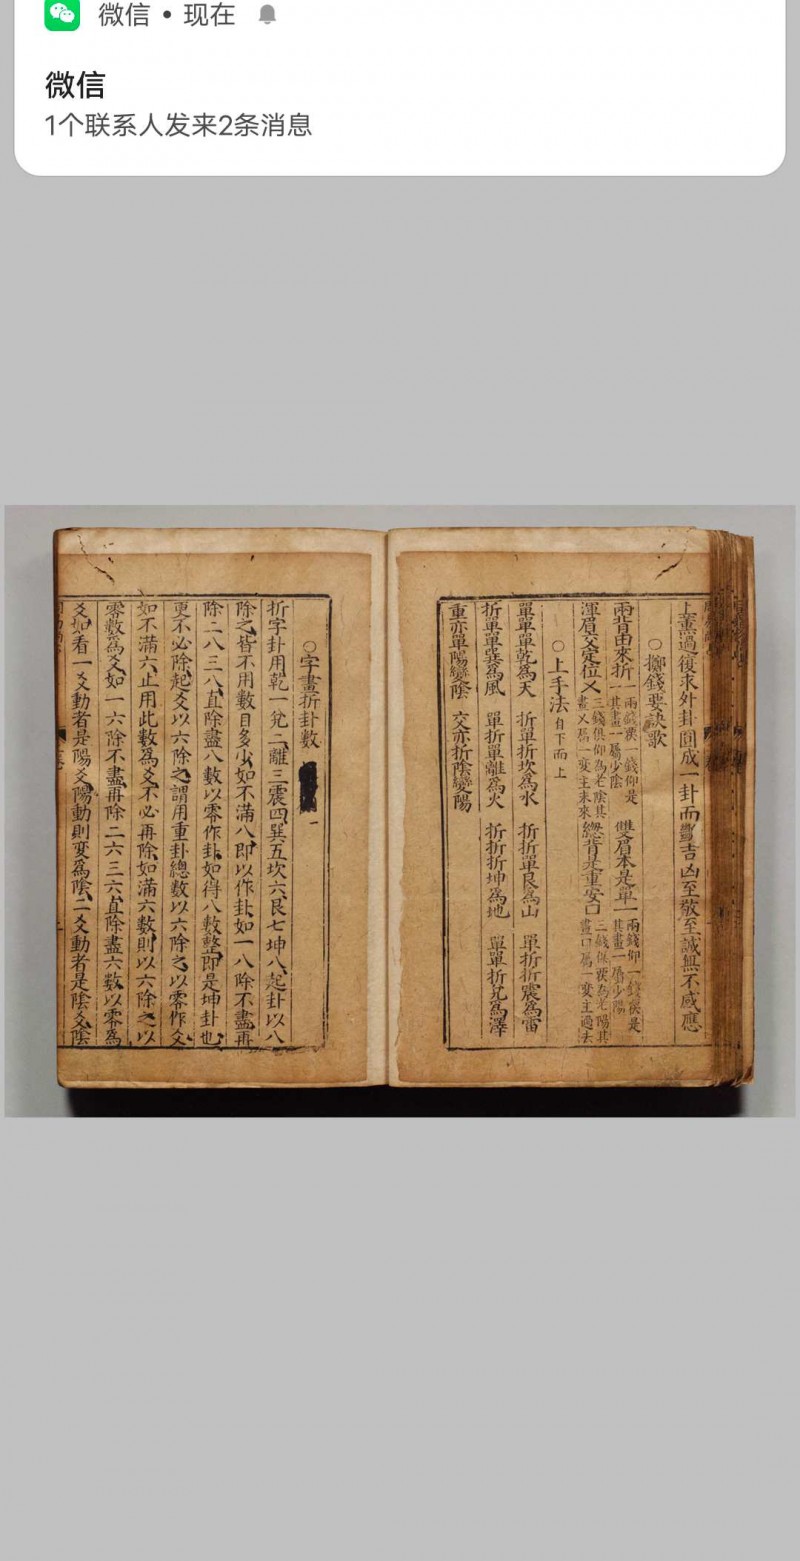 微信 • 现在
微信
1个联系人发来2条消息
上熏過復求外卦圓成一卦而斷吉凶至敬至誠無不感應
○擲錢要訣歌
兩背由來折 兩錢瀫一錢仰是其畫一屬少陰 雙眉本是單 兩錢仰一錢瀫是其畫一屬少陽
渾眉交定位 三錢俱仰為老陰其畫乂屬一变主未來 總背是重安 三錢俱瀫為老陽其畫口屬一变主過去
○上手法 自下而上
單單單乾為天 折單折坎為水 折折單艮為山 單折折震為雷
折單單巽為風 單折單離為火 折折折坤為地 單單折兌為澤
重亦單陽變陰 交亦折陰變陽
○字畫折卦數
折字卦用乾一兌二離三震四巽五坎六艮七坤八起卦以八
除之皆不用數目多少如不滿八即以作卦如一八除不盡再
除二八三八直除盡八數以零作卦如得八數整即是坤卦也
更不必除起爻以六除之謂用重卦總數以六除之以零作爻
如不滿六止用此數為爻不必再除如滿六數則以六除之以
零數為爻如一六除不盡再除二六三六直除盡六數以零為
爻如看一爻動者是陽爻陽動則变為陰二爻動者是陰爻陰